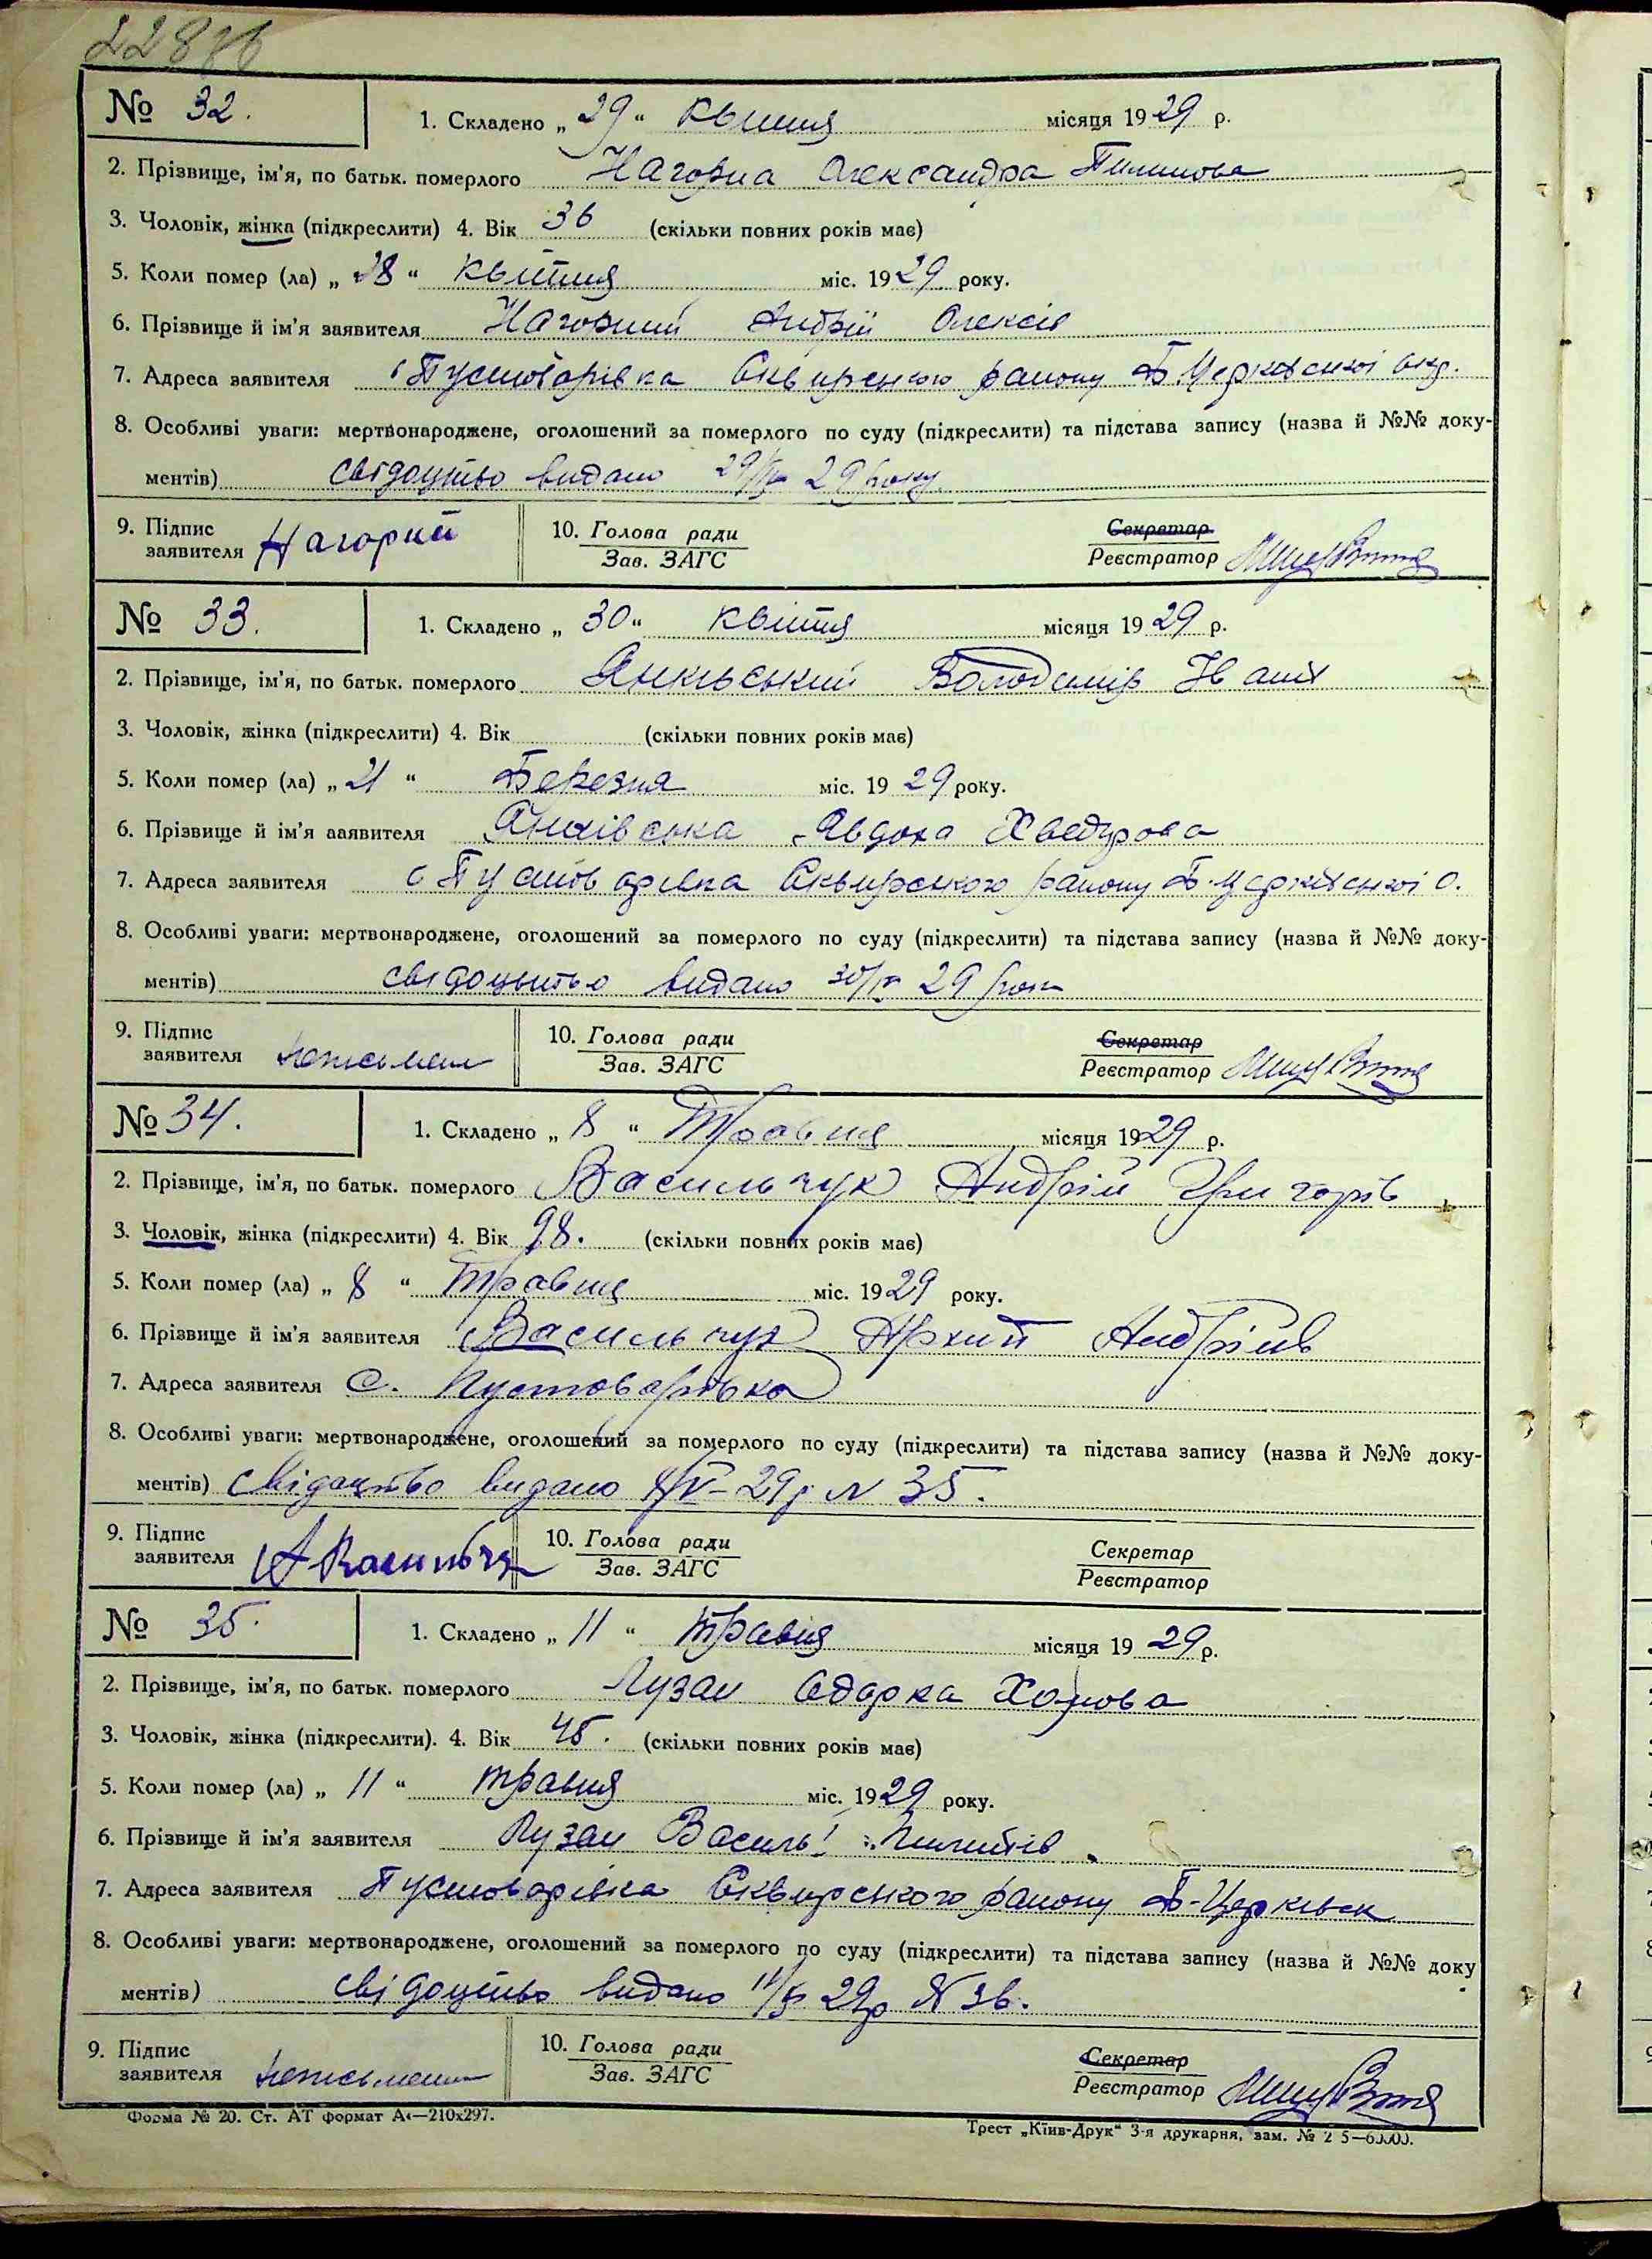 № 32. 1. Складено „ 29 “ квітня місяця 1929 р.
2. Прізвище, ім'я, по батьк. померлого Нагорна Олександра Пилипова
3. Чоловік, жінка (підкреслити) 4. Вік 36 (скільки повних років має)
5. Коли помер (ла) „ 28 “ квітня міс. 1929 року.
6. Прізвище й ім'я заявителя Нагорний Андрій Олексів
7. Адреса заявителя с Пустоварівка Сквирського району Б Церківської окр.
8. Особливі уваги: мертвонароджене, оголошений за померлого по суду (підкреслити) та підстава запису (назва й №№ доку-
ментів) свідоцтво видано 29/IV 29 року
9. Підпис заявителя Нагорний 10. Голова ради Зав. ЗАГС Секретар Реєстратор
№ 33. 1. Складено „ 30 “ квітня місяця 1929 р.
2. Прізвище, ім'я, по батьк. померлого Янківський Володимір Іванів
3. Чоловік, жінка (підкреслити) 4. Вік (скільки повних років має)
5. Коли помер (ла) „ 21 “ Березня міс. 1929 року.
6. Прізвище й ім'я ааявителя Янківська Явдоха Хведорова
7. Адреса заявителя с Пустоварівка Сквирського району Б. Церківської о.
8. Особливі уваги: мертвонароджене, оголошений за померлого по суду (підкреслити) та підстава запису (назва й №№ доку-
ментів) свідоцтво видано 30/IV 29 року
9. Підпис заявителя неписьмен 10. Голова ради Зав. ЗАГС Секретар Реєстратор
№ 34. 1. Складено „ 8 “ Травня місяця 1929 р.
2. Прізвище, ім'я, по батьк. померлого Васильчук Андрій Григорів
3. Чоловік, жінка (підкреслити) 4. Вік 98. (скільки повних років має)
5. Коли помер (ла) „ 8 “ Травня міс. 1929 року.
6. Прізвище й ім'я заявителя Васильчук Архип Андріїв
7. Адреса заявителя С. Пустоварівка
8. Особливі уваги: мертвонароджене, оголошений за померлого по суду (підкреслити) та підстава запису (назва й №№ доку-
ментів) Свідоцтво видано 8/V-29 р N 35.
9. Підпис заявителя А Васильчук 10. Голова ради Зав. ЗАГС Секретар Реєстратор
№ 35. 1. Складено „ 11 “ травня місяця 1929 р.
2. Прізвище, ім'я, по батьк. померлого Лузан Одарка
3. Чоловік, жінка (підкреслити). 4. Вік 45. (скільки повних років має)
5. Коли помер (ла) „ 11 “ травня міс. 1929 року.
6. Прізвище й ім'я заявителя Лузан Василь
7. Адреса заявителя Пустоварівка Сквирського району Б-Церківськ
8. Особливі уваги: мертвонароджене, оголошений за померлого по суду (підкреслити) та підстава запису (назва й №№ доку
ментів) свідоцтво видано 11/V 29р № 36.
9. Підпис заявителя неписьмен 10. Голова ради Зав. ЗАГС Секретар Реєстратор
Форма № 20. Ст. АТ формат А4—210x297. Трест „Київ-Друк“ 3-я друкарня, зам. №